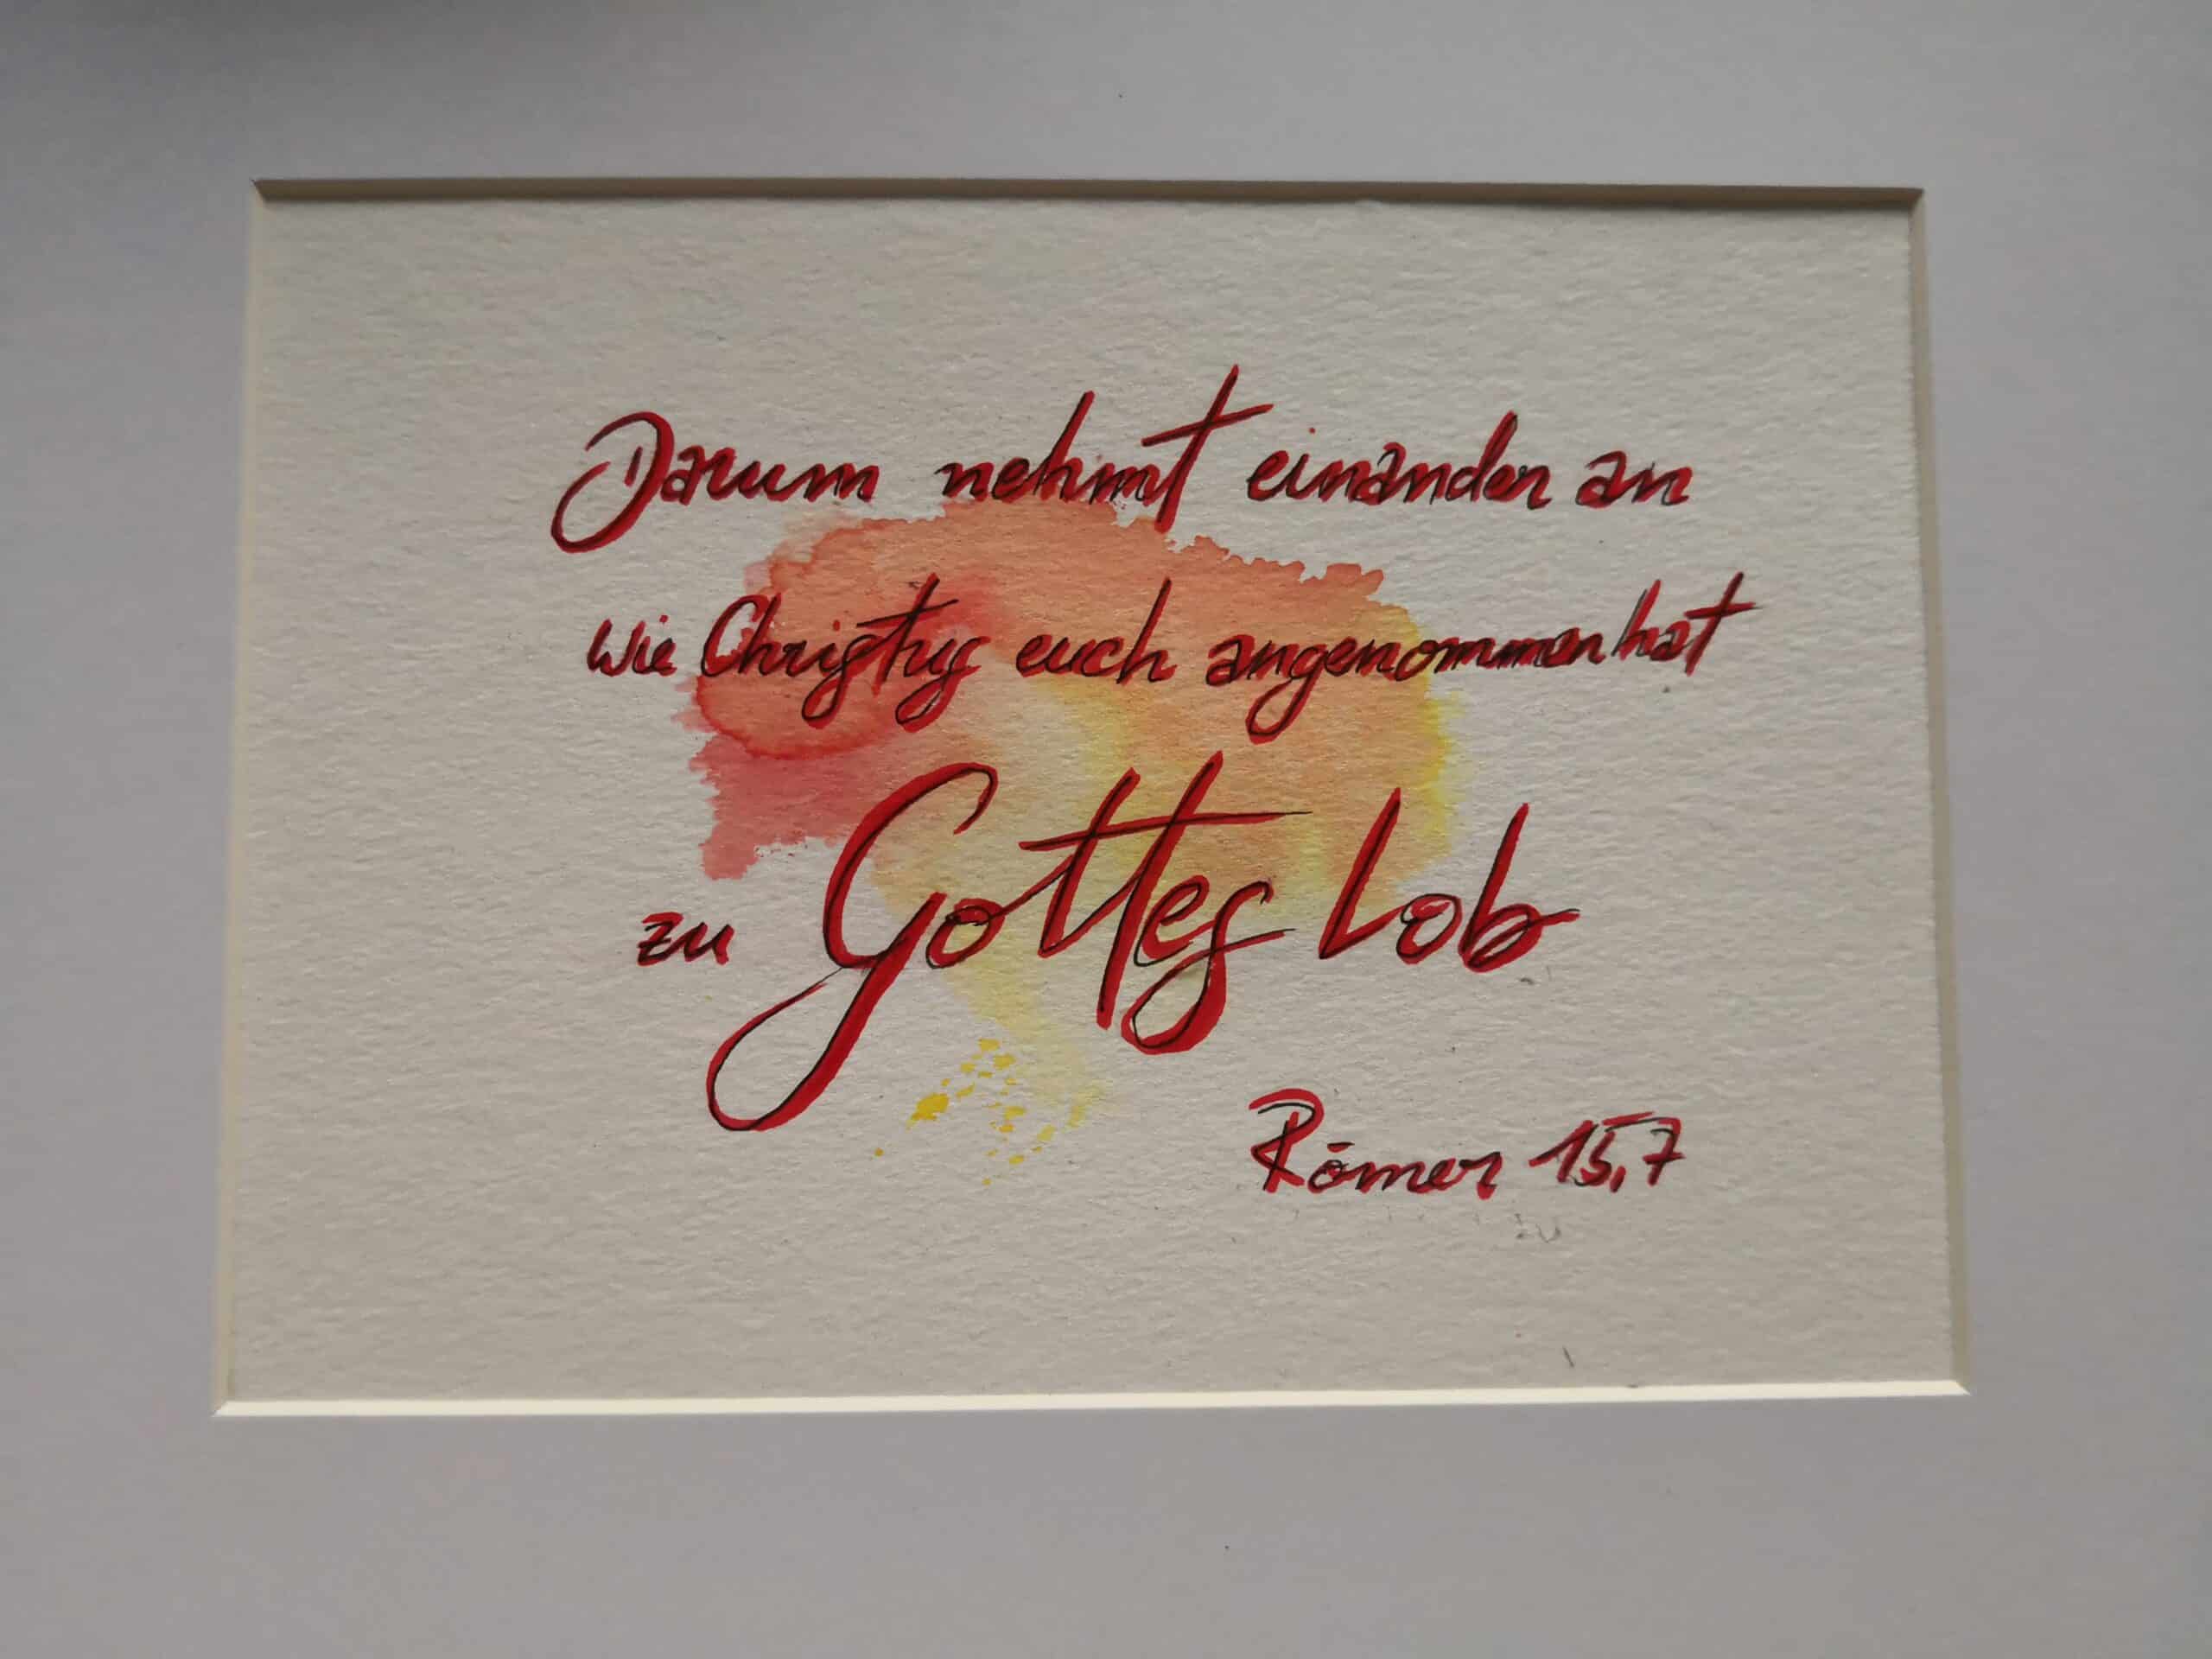 Darum nehmt einander an
wie Christus euch angenommen hat
zu Gottes Lob
Römer 15,7